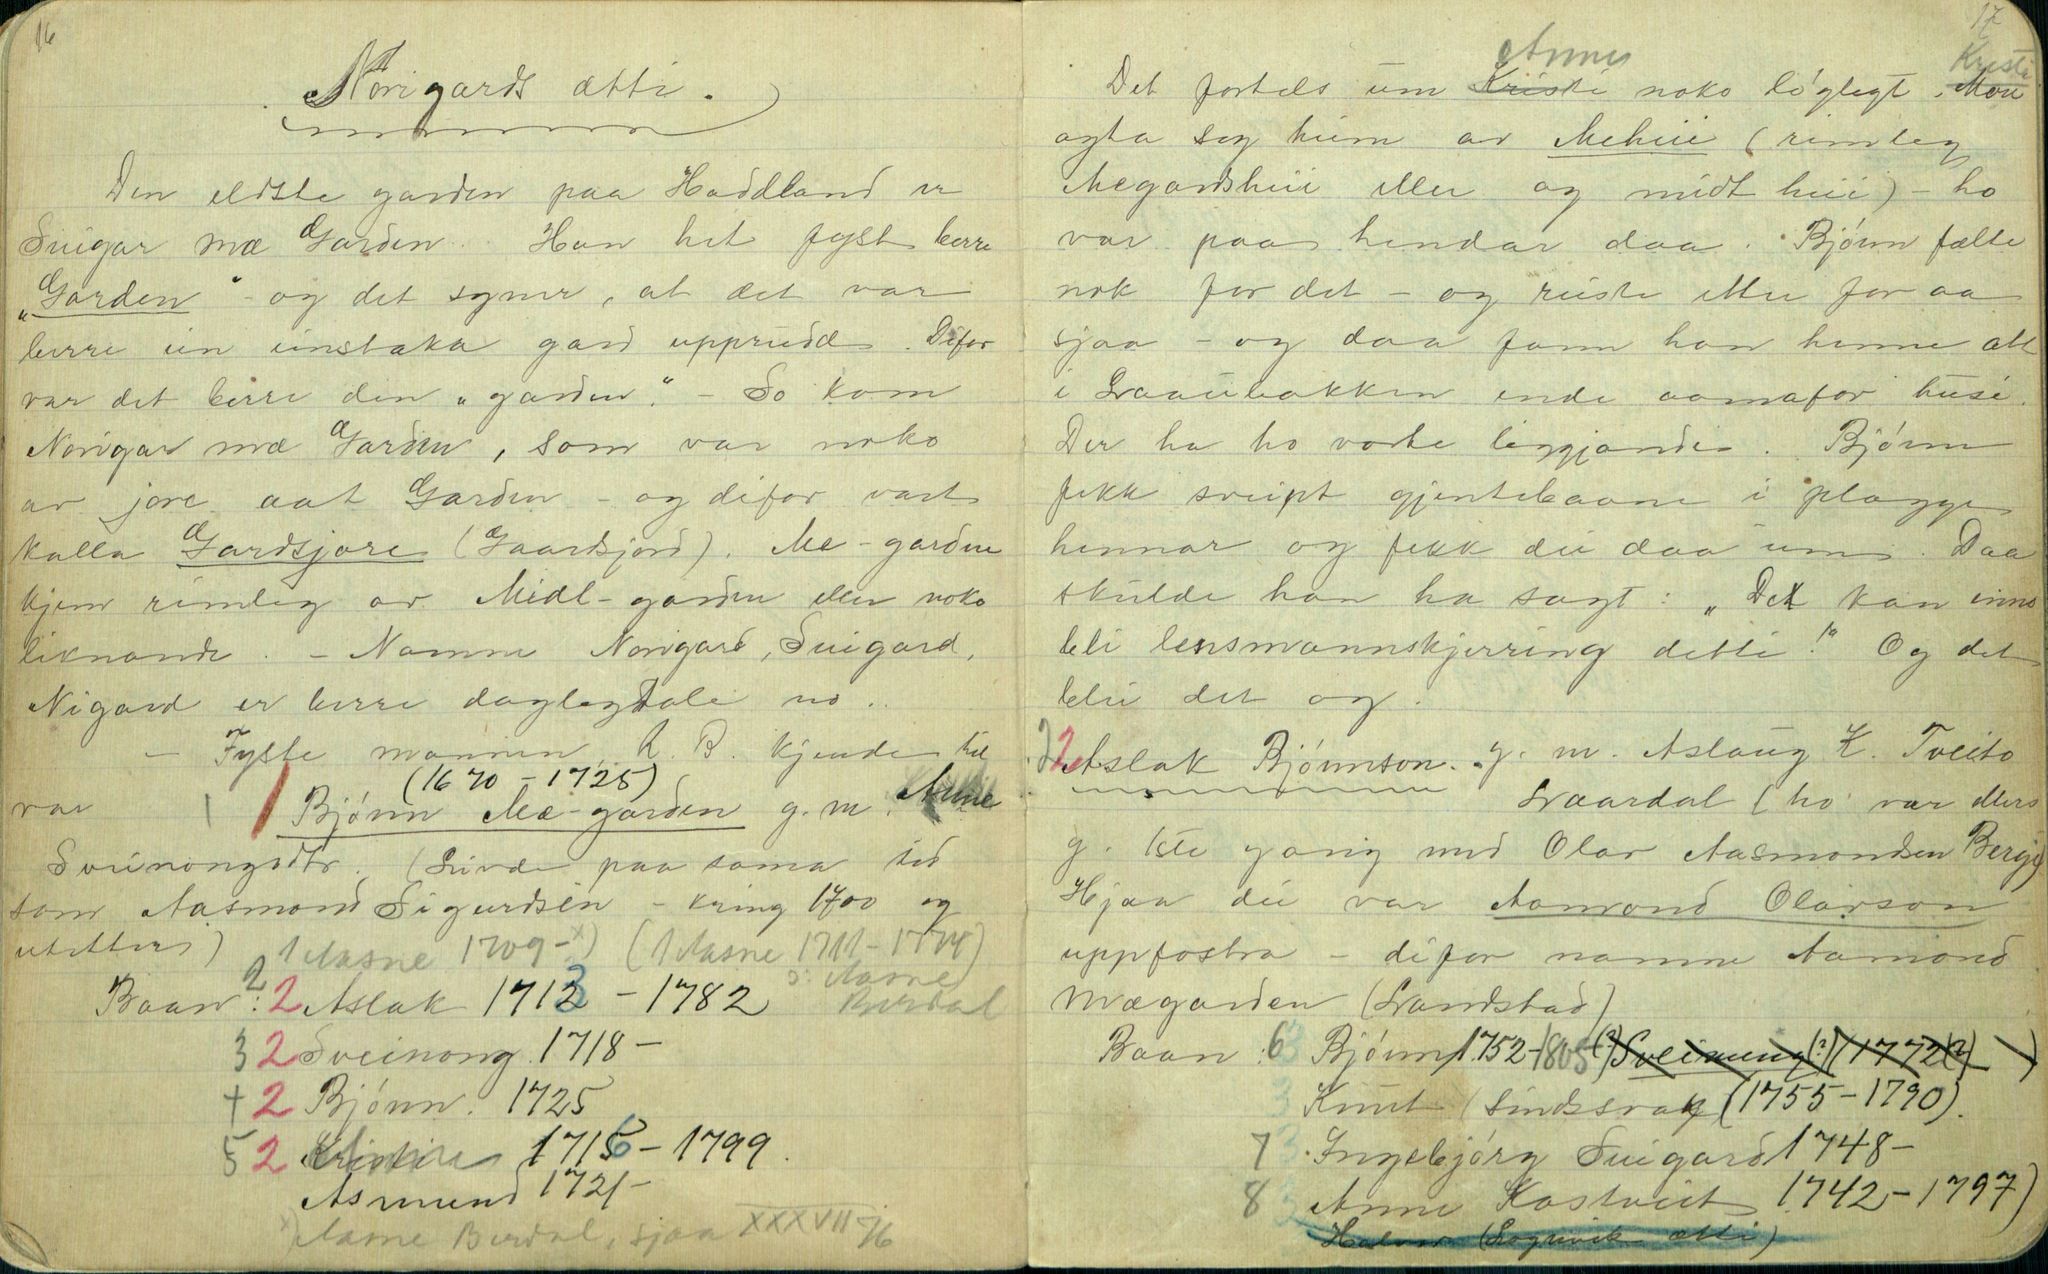 16
Norigards ætti.
Den eldste garden paa Haddland er
Suigar mæ Garden. Han het fyst berre
„Garden“ - og det syner, at det var
berre ein einstaka gard upprudd. Difor
var det berre den „garden“. - So kom
Norigar mæ Garden, som var noko
av jore aat Garden - og difor vart
kalla Gardsjore (Gaardsjord). Me-garden
kjem rimleg av Midl-garden eller noko
liknande. - Namne Norigard, Suigard,
Nigard er berre daglegtale no.
- Fyste mannen, R. B. kjende til
(1670 - 1725)
var 1 Bjónn Mæ-garden g. m. Anne
Sveinongsdtr. (Livde paa sama tid
som Aasmond Sigurdsen - kring 1700 og
utetter)
1 Aasne 1709-x) (1 Aasne 1711-
Aasne
Berdal
Baan: 2 2 Aslak 1713 - 1782
3 2 Sveinong 1718 -
+ 2 Bjónn. 1725
5 2 1716 - 1799.
Asmund 1721 -
x) Aasne Berdal, sjaa XXXVII 76
17
Anne Kristi
Det fortels um Kristi noko lóglegt. Mor
agta seg heim av Mehei (rimleg
Megardshei eller og midt hei) - ho
var paa hendar daa. Bjónn fælte
nok for det - og reiste etter for aa
sjaa - og daa fann han henne att
i Laaubakken ende aamafor husi.
Der ha ho vorte liggjande. Bjónn
fekk sveipt gjentebaane i plagge
hennar og fekk dei daa um. Daa
skulde han ha sagt: „Det kan enno
bli lensmannskjerring detti!“ Og det
blei det og.
2 2 Aslak Bjónnson. g. m. Aslaug K. Tveito
Laardal (ho var ellers
g. 1ste gang med Olav Aasmondsen Berge)
Hjaa dei var Aamond Olavson
uppfostra - difor namne Aamond
Mægarden (Landstad)
Baan: 6 3 Bjónn 1752-1805 (?) Sveinung (?) (1772(?) )
3 Knut (1755-1790).
7 3 Ingebjórg Suigard 1748 -
8 3 Anne Kostveit 1742-1797)
Halvor (Lognvik ætti)